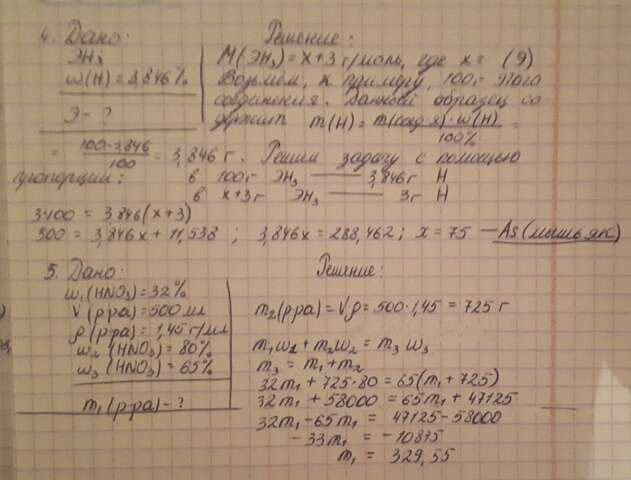 4. Дано:
ЭH₃
ω(H) = 3,846%
Э - ?
Решение:
M(ЭH₃) = x+3 г/моль, где x = (Э)
Возьмём, к примеру, 100г этого
соединения. Данный образец со
держит m(H) = m(соед-я)·ω(H) / 100% =
= 100·3,846 / 100 = 3,846 г. Решим задачу с помощью
пропорции: в 100г ЭH₃ — 3,846г H
в x+3г ЭH₃ — 3г H
3·100 = 3,846(x+3)
300 = 3,846x + 11,538 ; 3,846x = 288,462 ; x = 75 — As (мышьяк)
5. Дано:
ω₁(HNO₃) = 32%
V(р-ра) = 500 мл
ρ(р-ра) = 1,45 г/мл
ω₂(HNO₃) = 80%
ω₃(HNO₃) = 65%
m₁(р-ра) - ?
Решение:
m₂(р-ра) = Vρ = 500·1,45 = 725 г
m₁ω₁ + m₂ω₂ = m₃ω₃
m₃ = m₁ + m₂
32m₁ + 725·80 = 65(m₁ + 725)
32m₁ + 58000 = 65m₁ + 47125
32m₁ - 65m₁ = 47125 - 58000
-33m₁ = -10875
m₁ = 329,55